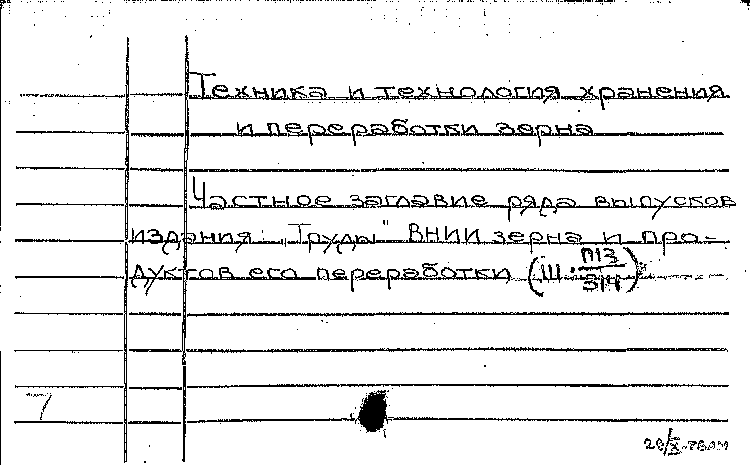 Техника и технология хранения
и переработки зерна
Частное заглавие ряда выпусков
издания: „Труды" ВНИИ зерна и про-
дуктов его переработки (III. П13/314)
7